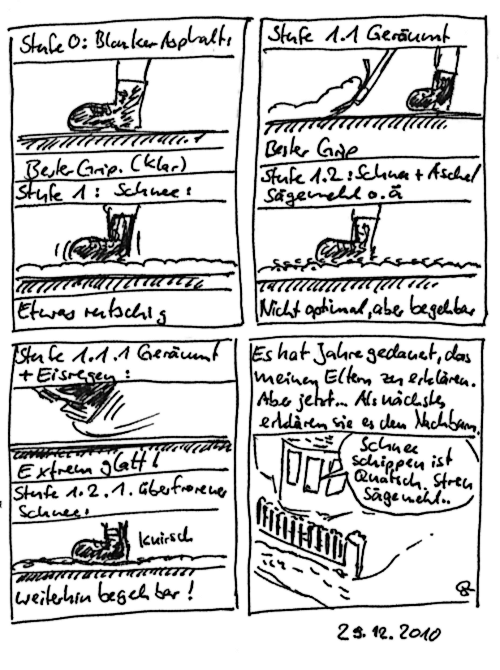 Stufe 0: Blanker Asphalt:
Bester Grip. (klar)
Stufe 1: Schnee:
Etwas rutschig
Stufe 1.1 Geräumt
Bester Grip
Stufe 1.2: Schnee + Asche/
Sägemehl o.ä
Nicht optimal, aber begehbar
Stufe 1.1.1 Geräumt
+ Eisregen:
Extrem glatt!
Stufe 1.2.1. überfrorener
Schnee:
knirsch
weiterhin begehbar!
Es hat Jahre gedauert, das
meinen Eltern zu erklären.
Aber jetzt... Als nächstes
erklären sie es den Nachbarn.
Schnee
schippen ist
Quatsch. Streu
Sägemehl..
29.12.2010